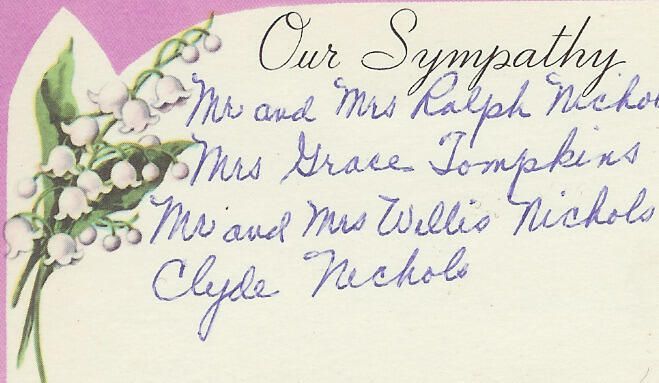 Our Sympathy
Mr and Mrs Ralph Nichol
Mrs Grace Tompkins
Mr and Mrs Willis Nichols
Clyde Nichols